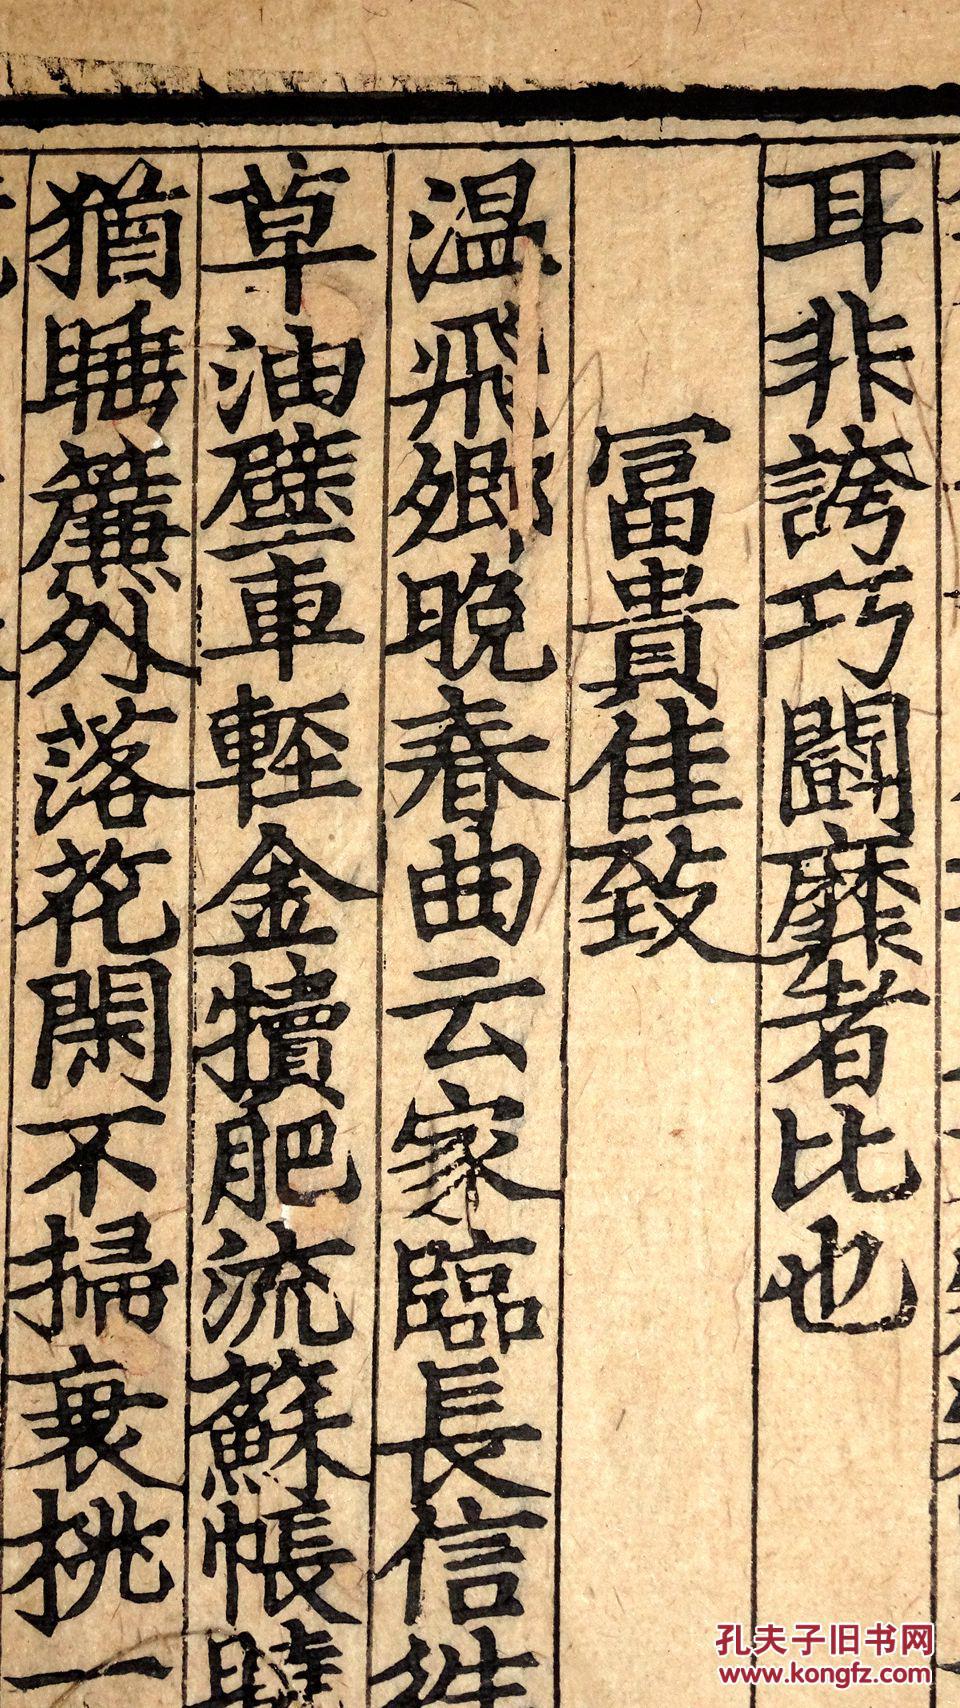 耳非誇巧鬪靡者比也
冨貴佳致
温飛卿晩春曲云家臨長信往
草油壁車輕金犢肥流蘇帳曉
猶睡簾外落花閑不掃衰桃一
孔夫子旧书网
www.kongfz.com